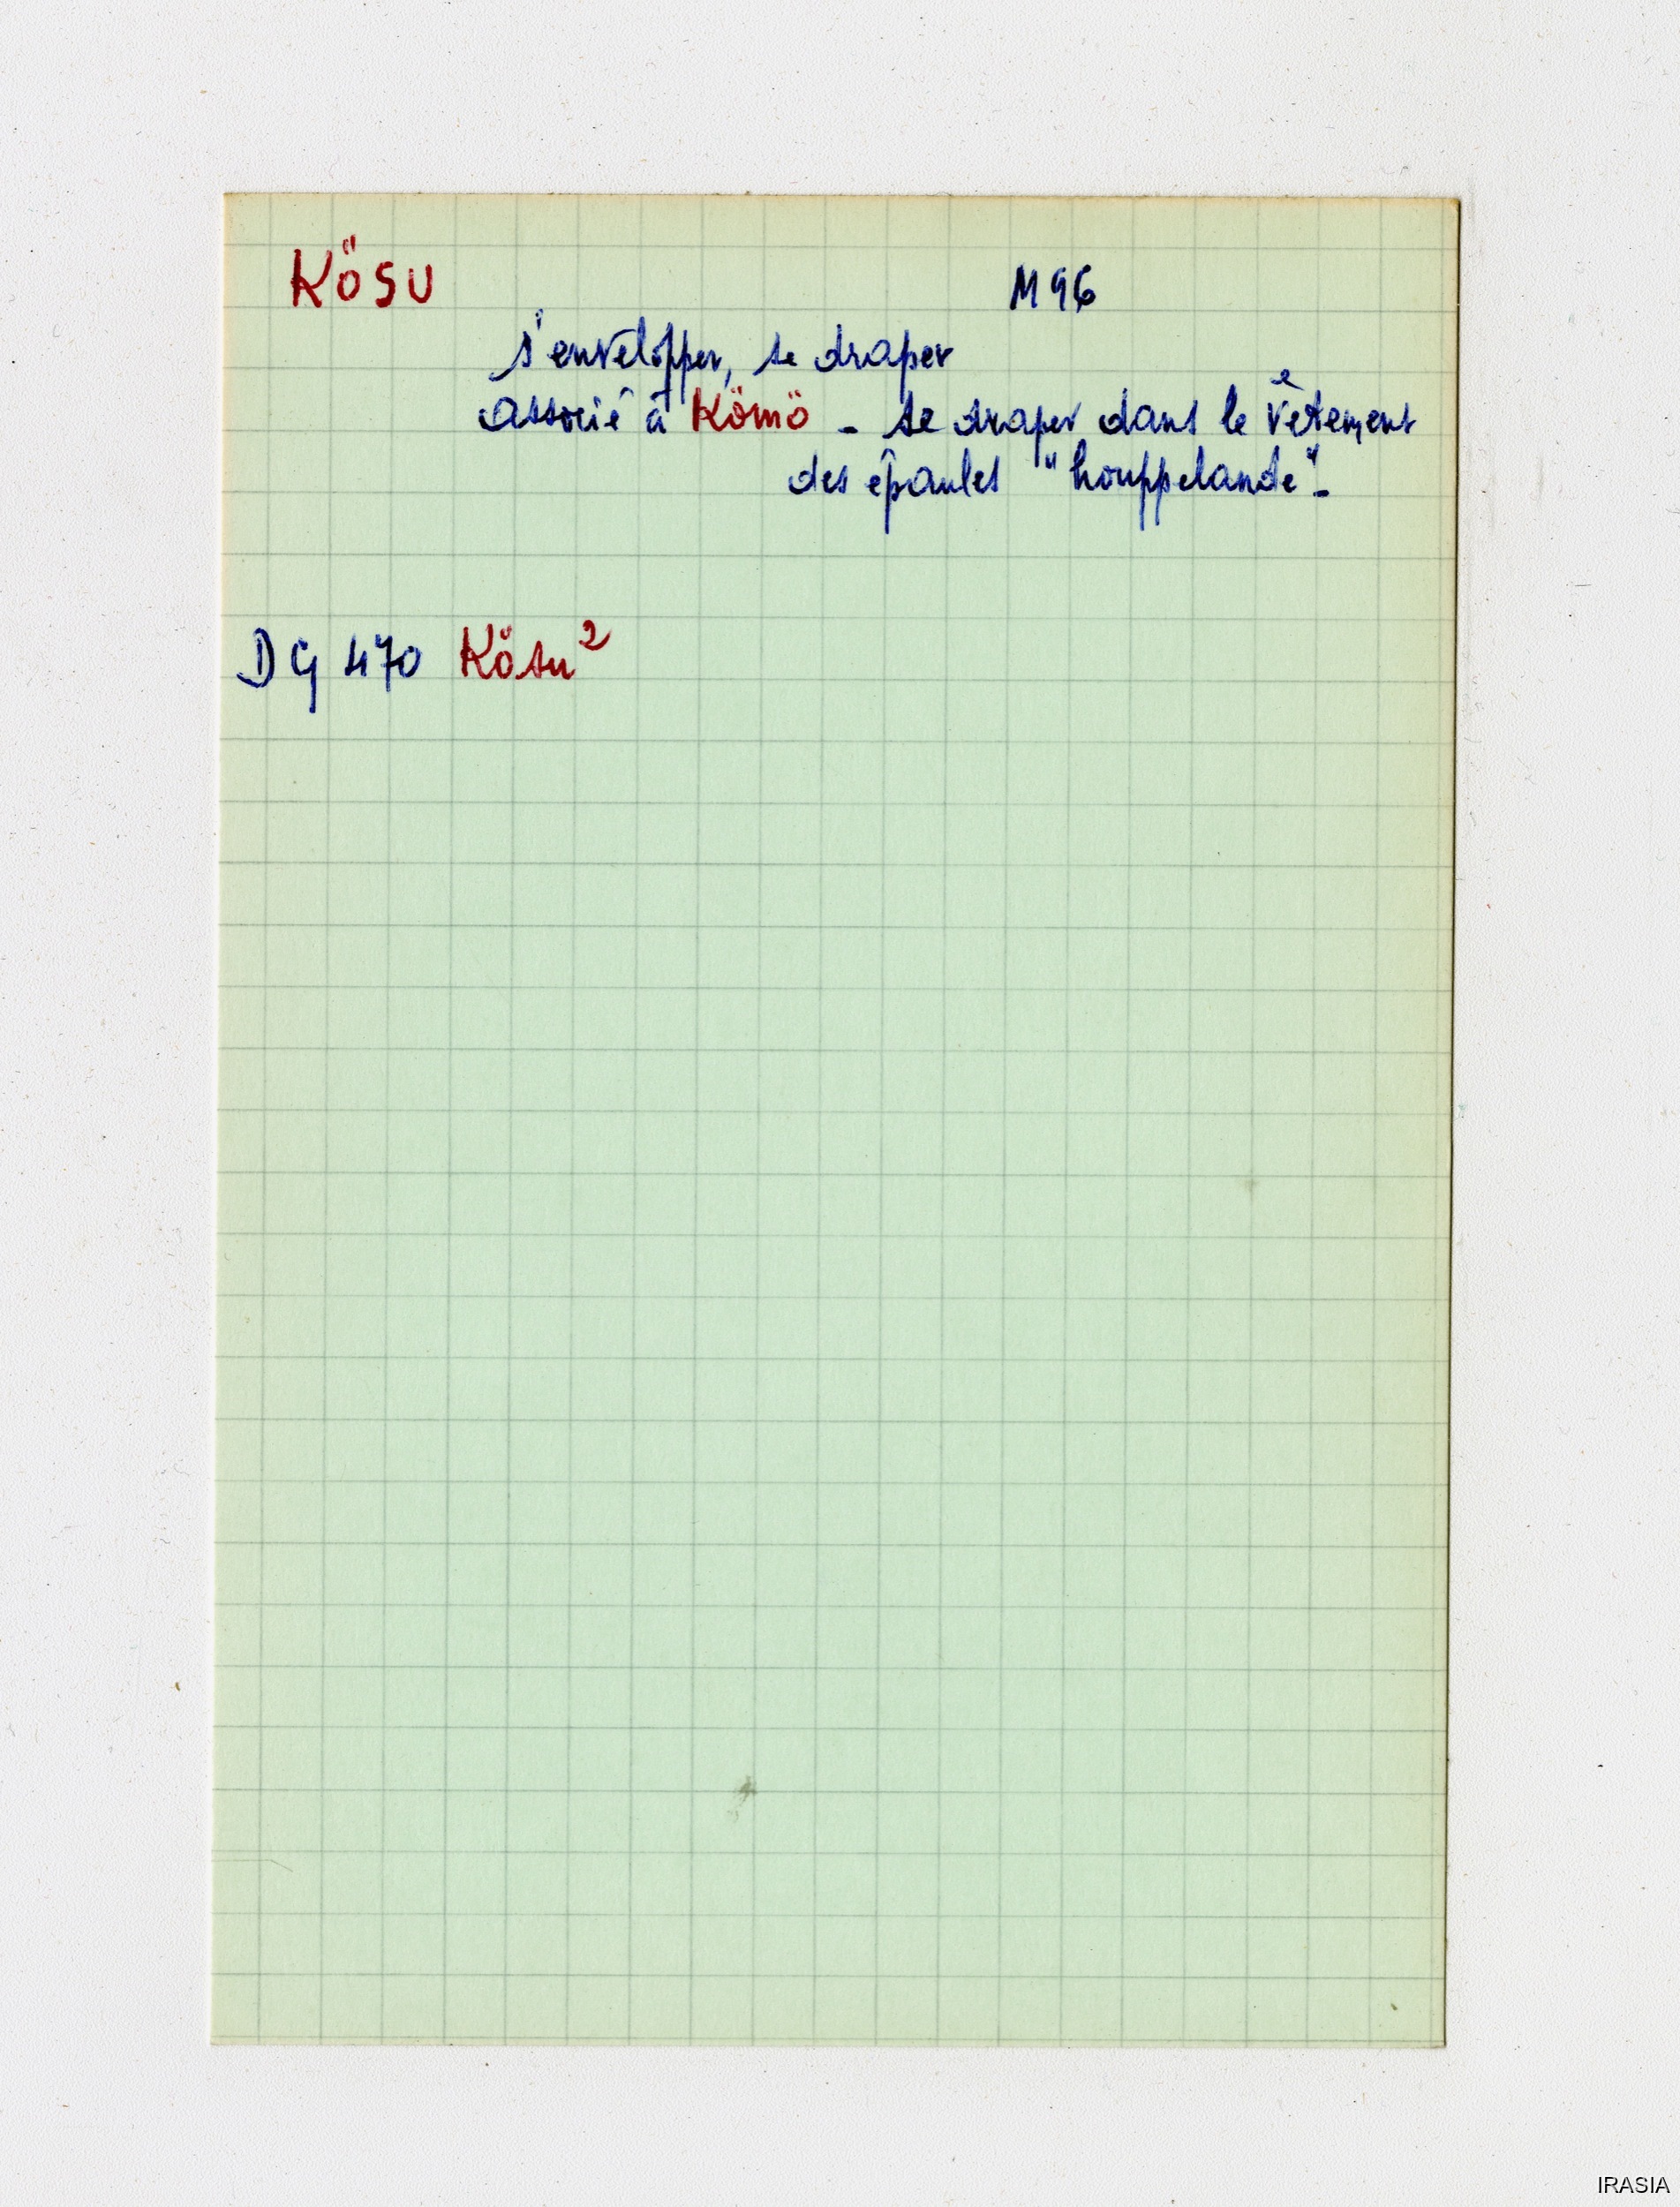 KÖSU M 96
s'envelopper, se draper
associé à Kömö - se draper dans le vêtement
des épaules "houppelande" -
DG 470 Kösu²
IRASIA